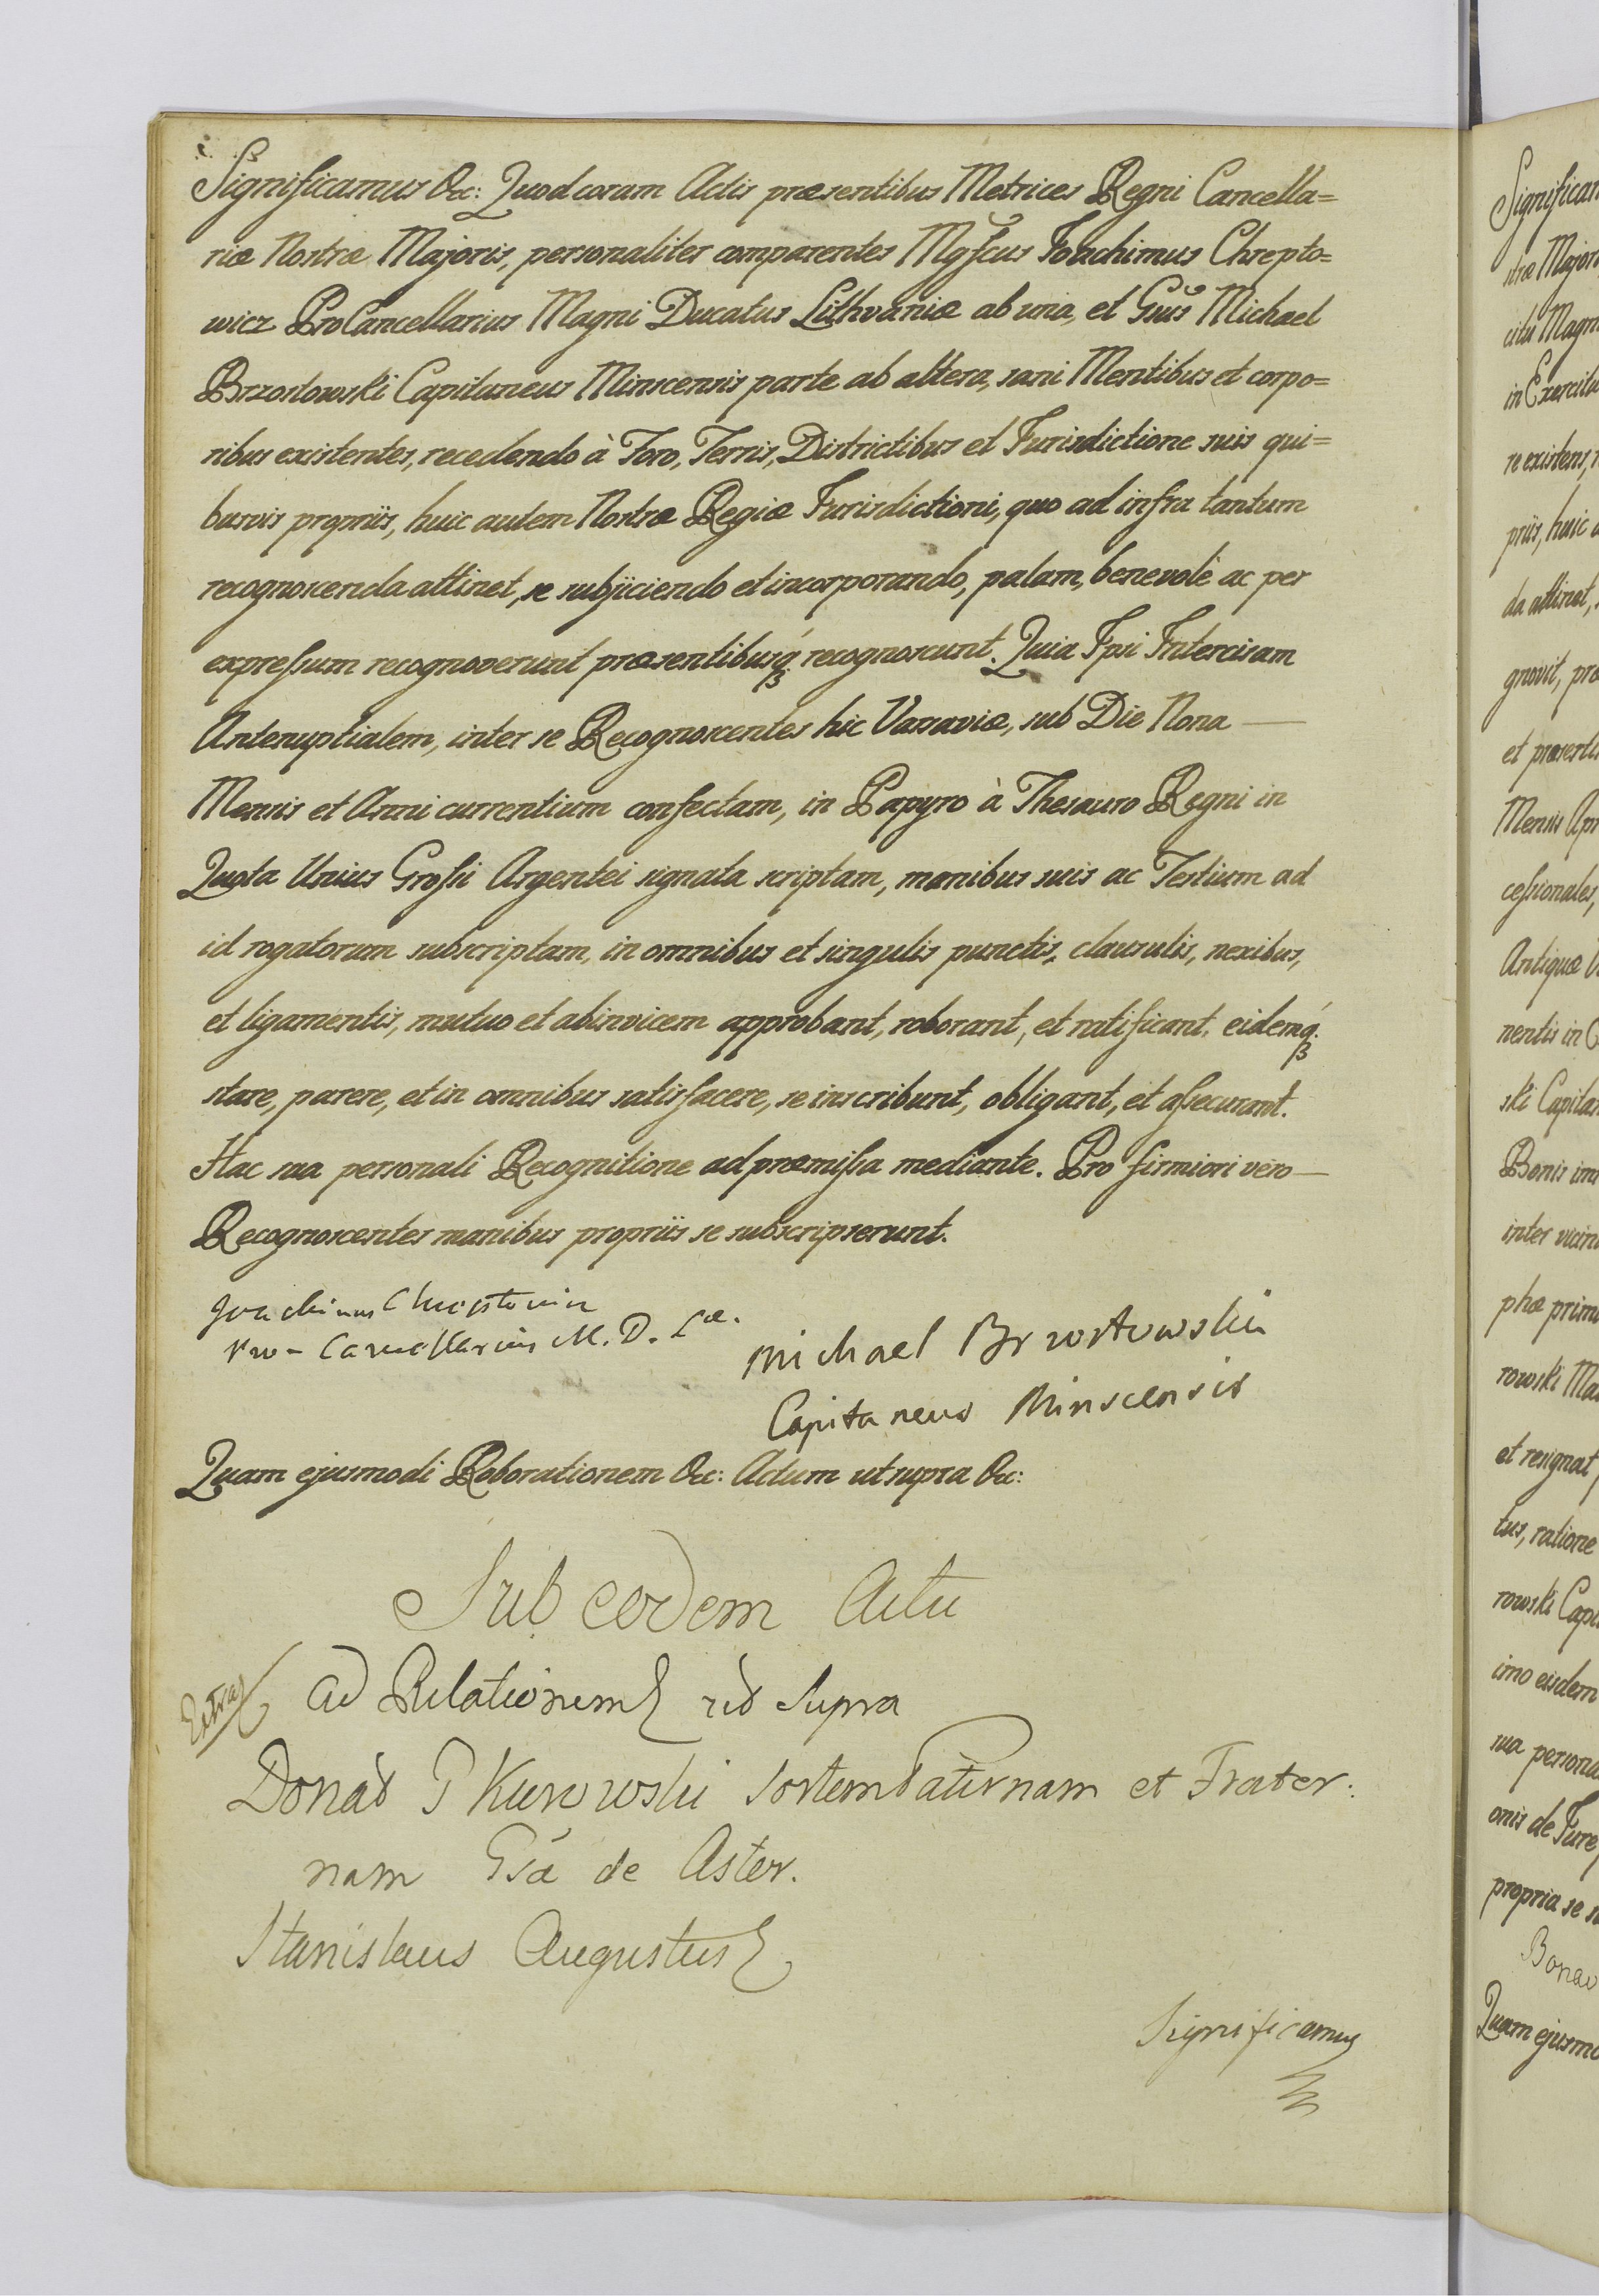 Significamus &c: Quod coram Actis præsentibus Metrices Regni Cancella=
riæ Nostræ Majoris, personaliter comparentes Mgfcus Joachimus Chrepto=
wicz ProCancellarius Magni Ducatus Lithvaniæ ab una, et Gnus Michael
Brzostowski Capitaneus Minscensis parte ab altera, sani Mentibus et corpo=
ribus existentes, recedendo à Foro, Terris, Districtibus et Jurisdictione suis qui=
busvis propriis, huic autem Nostræ Regiæ Jurisdictioni, quo ad infra tantum
recognoscenda attinet, se subjiciendo et incorporando, palam, benevolè ac per
expressum recognoverunt præsentibusq́ recognoscunt. Quia Ipsi Intercisam
Antenuptialem, inter se Recognoscentes hic Varsaviæ, sub Die Nona —
Mensis et Anni currentium confectam, in Papyro à Thesauro Regni in
Quota Unius Grossi Argentei signata scriptam, manibus suis ac Testium ad
id rogatorum subscriptam, in omnibus et singulis punctis, clausulis, nexibus,
et ligamentis, mutuo et abinvicem approbant, roborant, et ratificant, eidemq́.
stare, parere, et in omnibus satisfacere, se inscribunt, obligant, et assecurant.
Hac sua personali Recognitione ad præmissa mediante. Pro firmiori vero —
Recognoscentes manibus propriis se subscripserunt.
Joachimus Chreptowicz
Pro-Cancellarius M. D. Læ.
Michael Brzostowski
Capitaneus Minscensis
Quam ejusmodi Roborationem &c: Actum ut supra &c:
Sub eodem Actu
Extrad
Ad Relationem ut supra
Donat G Kurowski sortem Paternam et Frater:
nam Gsá de Aster.
Stanislaus Augustus
Significamus
Significam
stræ Majori
citû Magn
in Exercitu
re existens, r
priis, huic a
da attinet,
gnovit, præ
et præsenti
Mensis Apr
cessionales,
Antiquæ
nentis in
ski Capitan
Bonis im
inter vicin
phæ prim
rowski Ma
et resignat
tus, ratione
rowski Cap
imo eisdem
sua persona
onis de Jure
propria se s
Bonav
Quam ejusmo